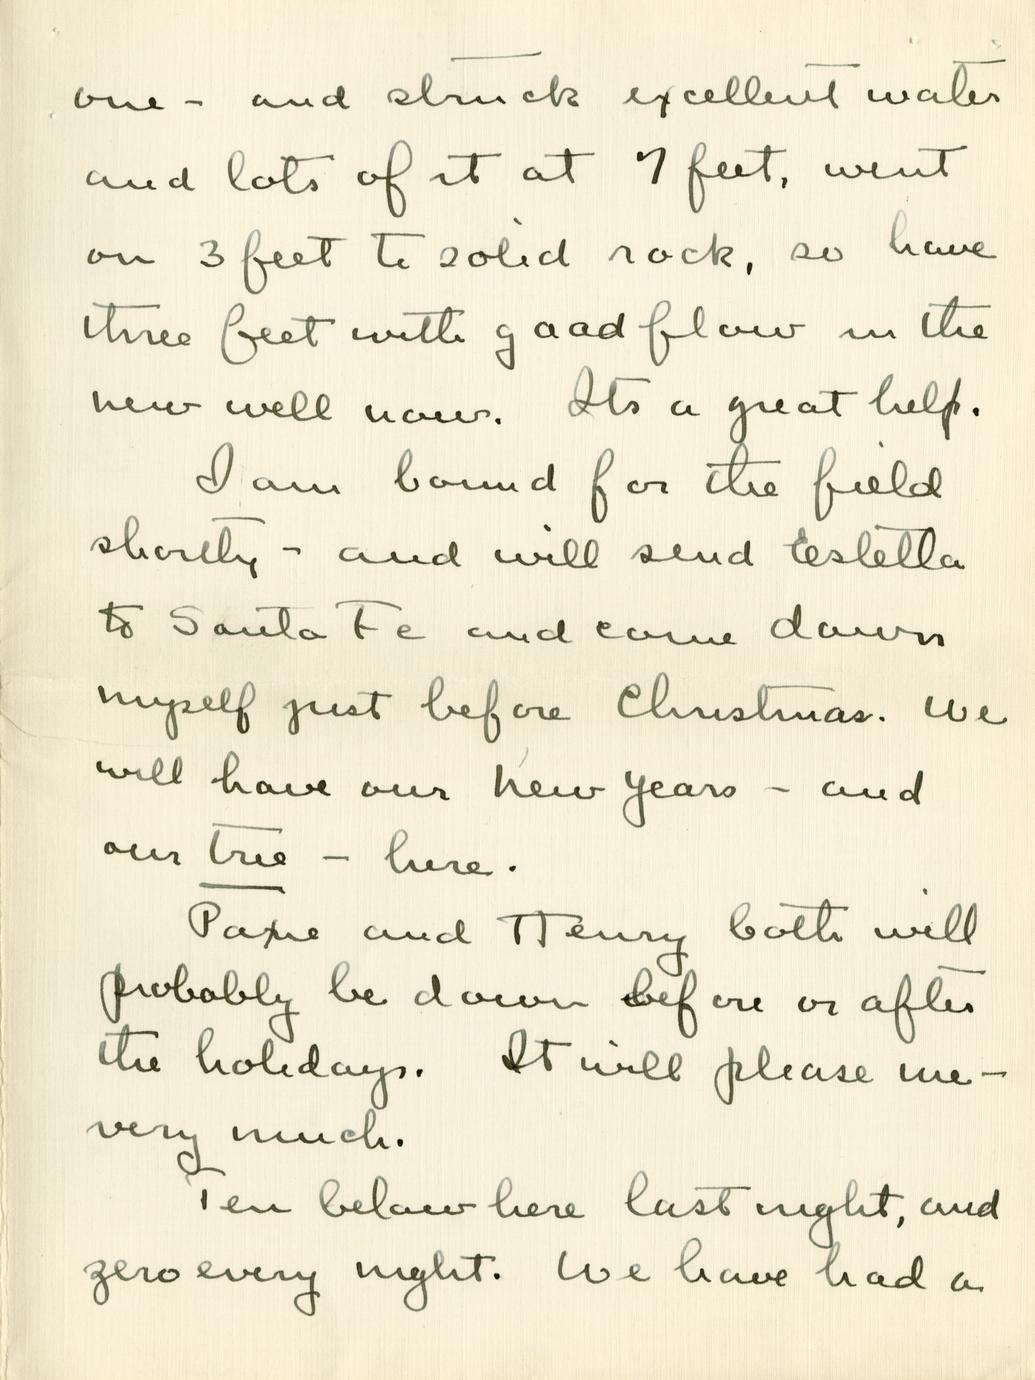 one - and struck excellent water
and lots of it at 7 feet, went
on 3 feet to solid rock, so have
three feet with good flow in the
new well now. Its a great help.
I am bound for the field
shortly - and will send Estella
to Santa Fe and come down
myself just before Christmas. We
will have our New Years - and
our tree - here.
and Henry both will
probably be down before or after
the holidays. It will please me -
very much.
Ten below here last night, and
zero every night. We have had a